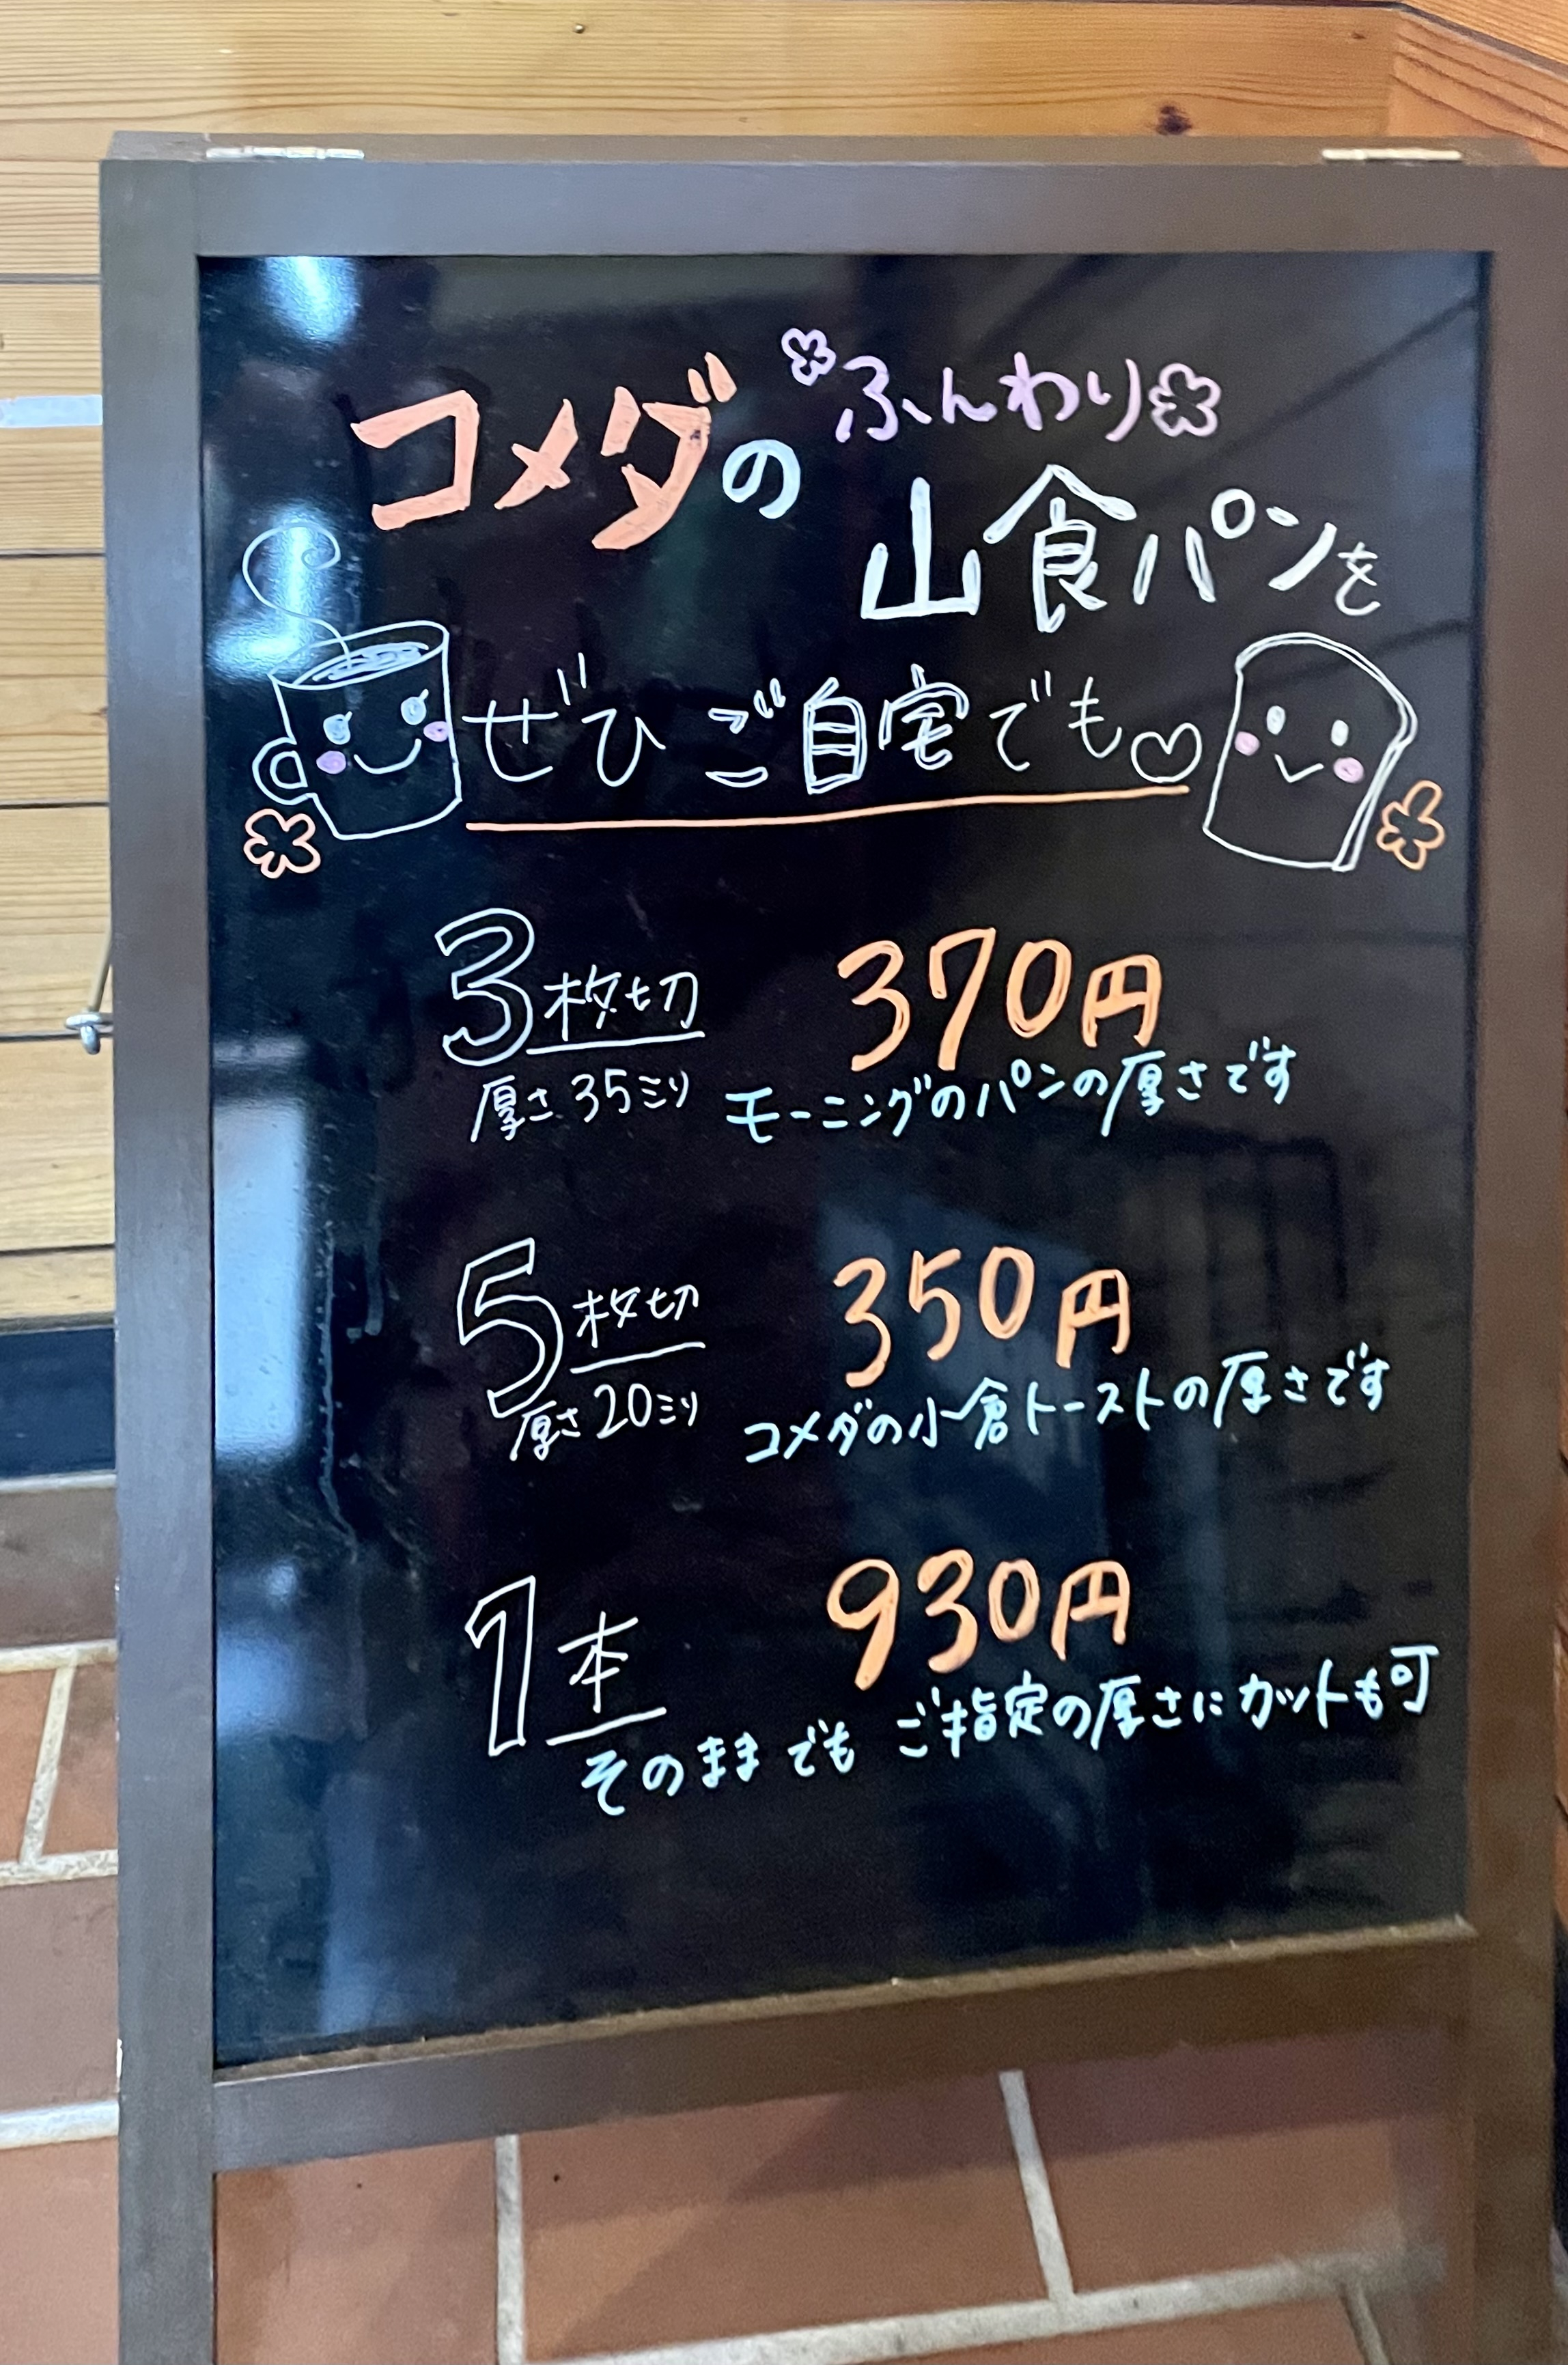 コメダの ふんわり
山食パンを
ぜひ ご自宅でも
3枚切 370円
厚さ 35ミリ モーニングのパンの厚さです
5枚切 350円
厚さ 20ミリ コメダの小倉トーストの厚さです
1本 930円
そのままでも ご指定の厚さにカットも可